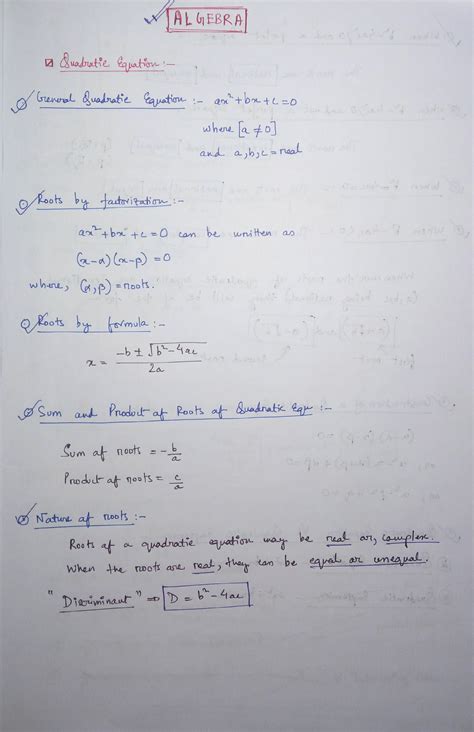 ALGEBRA
Quadratic Equation :-
General Quadratic Equation :- ax² + bx + c = 0
where [a ≠ 0]
and a, b, c = real
Roots by factorization :-
ax² + bx + c = 0 can be written as
(x-α) (x-β) = 0
where, (α, β) = roots.
Roots by formula :-
x = (-b ± √(b² - 4ac)) / 2a
Sum and Product of Roots of Quadratic Equⁿ :-
Sum of roots = - b/a
Product of roots = c/a
Nature of roots :-
Roots of a quadratic equation may be real or, complex.
When the roots are real, they can be equal or unequal.
"Discriminant" ⇒ D = b² - 4ac